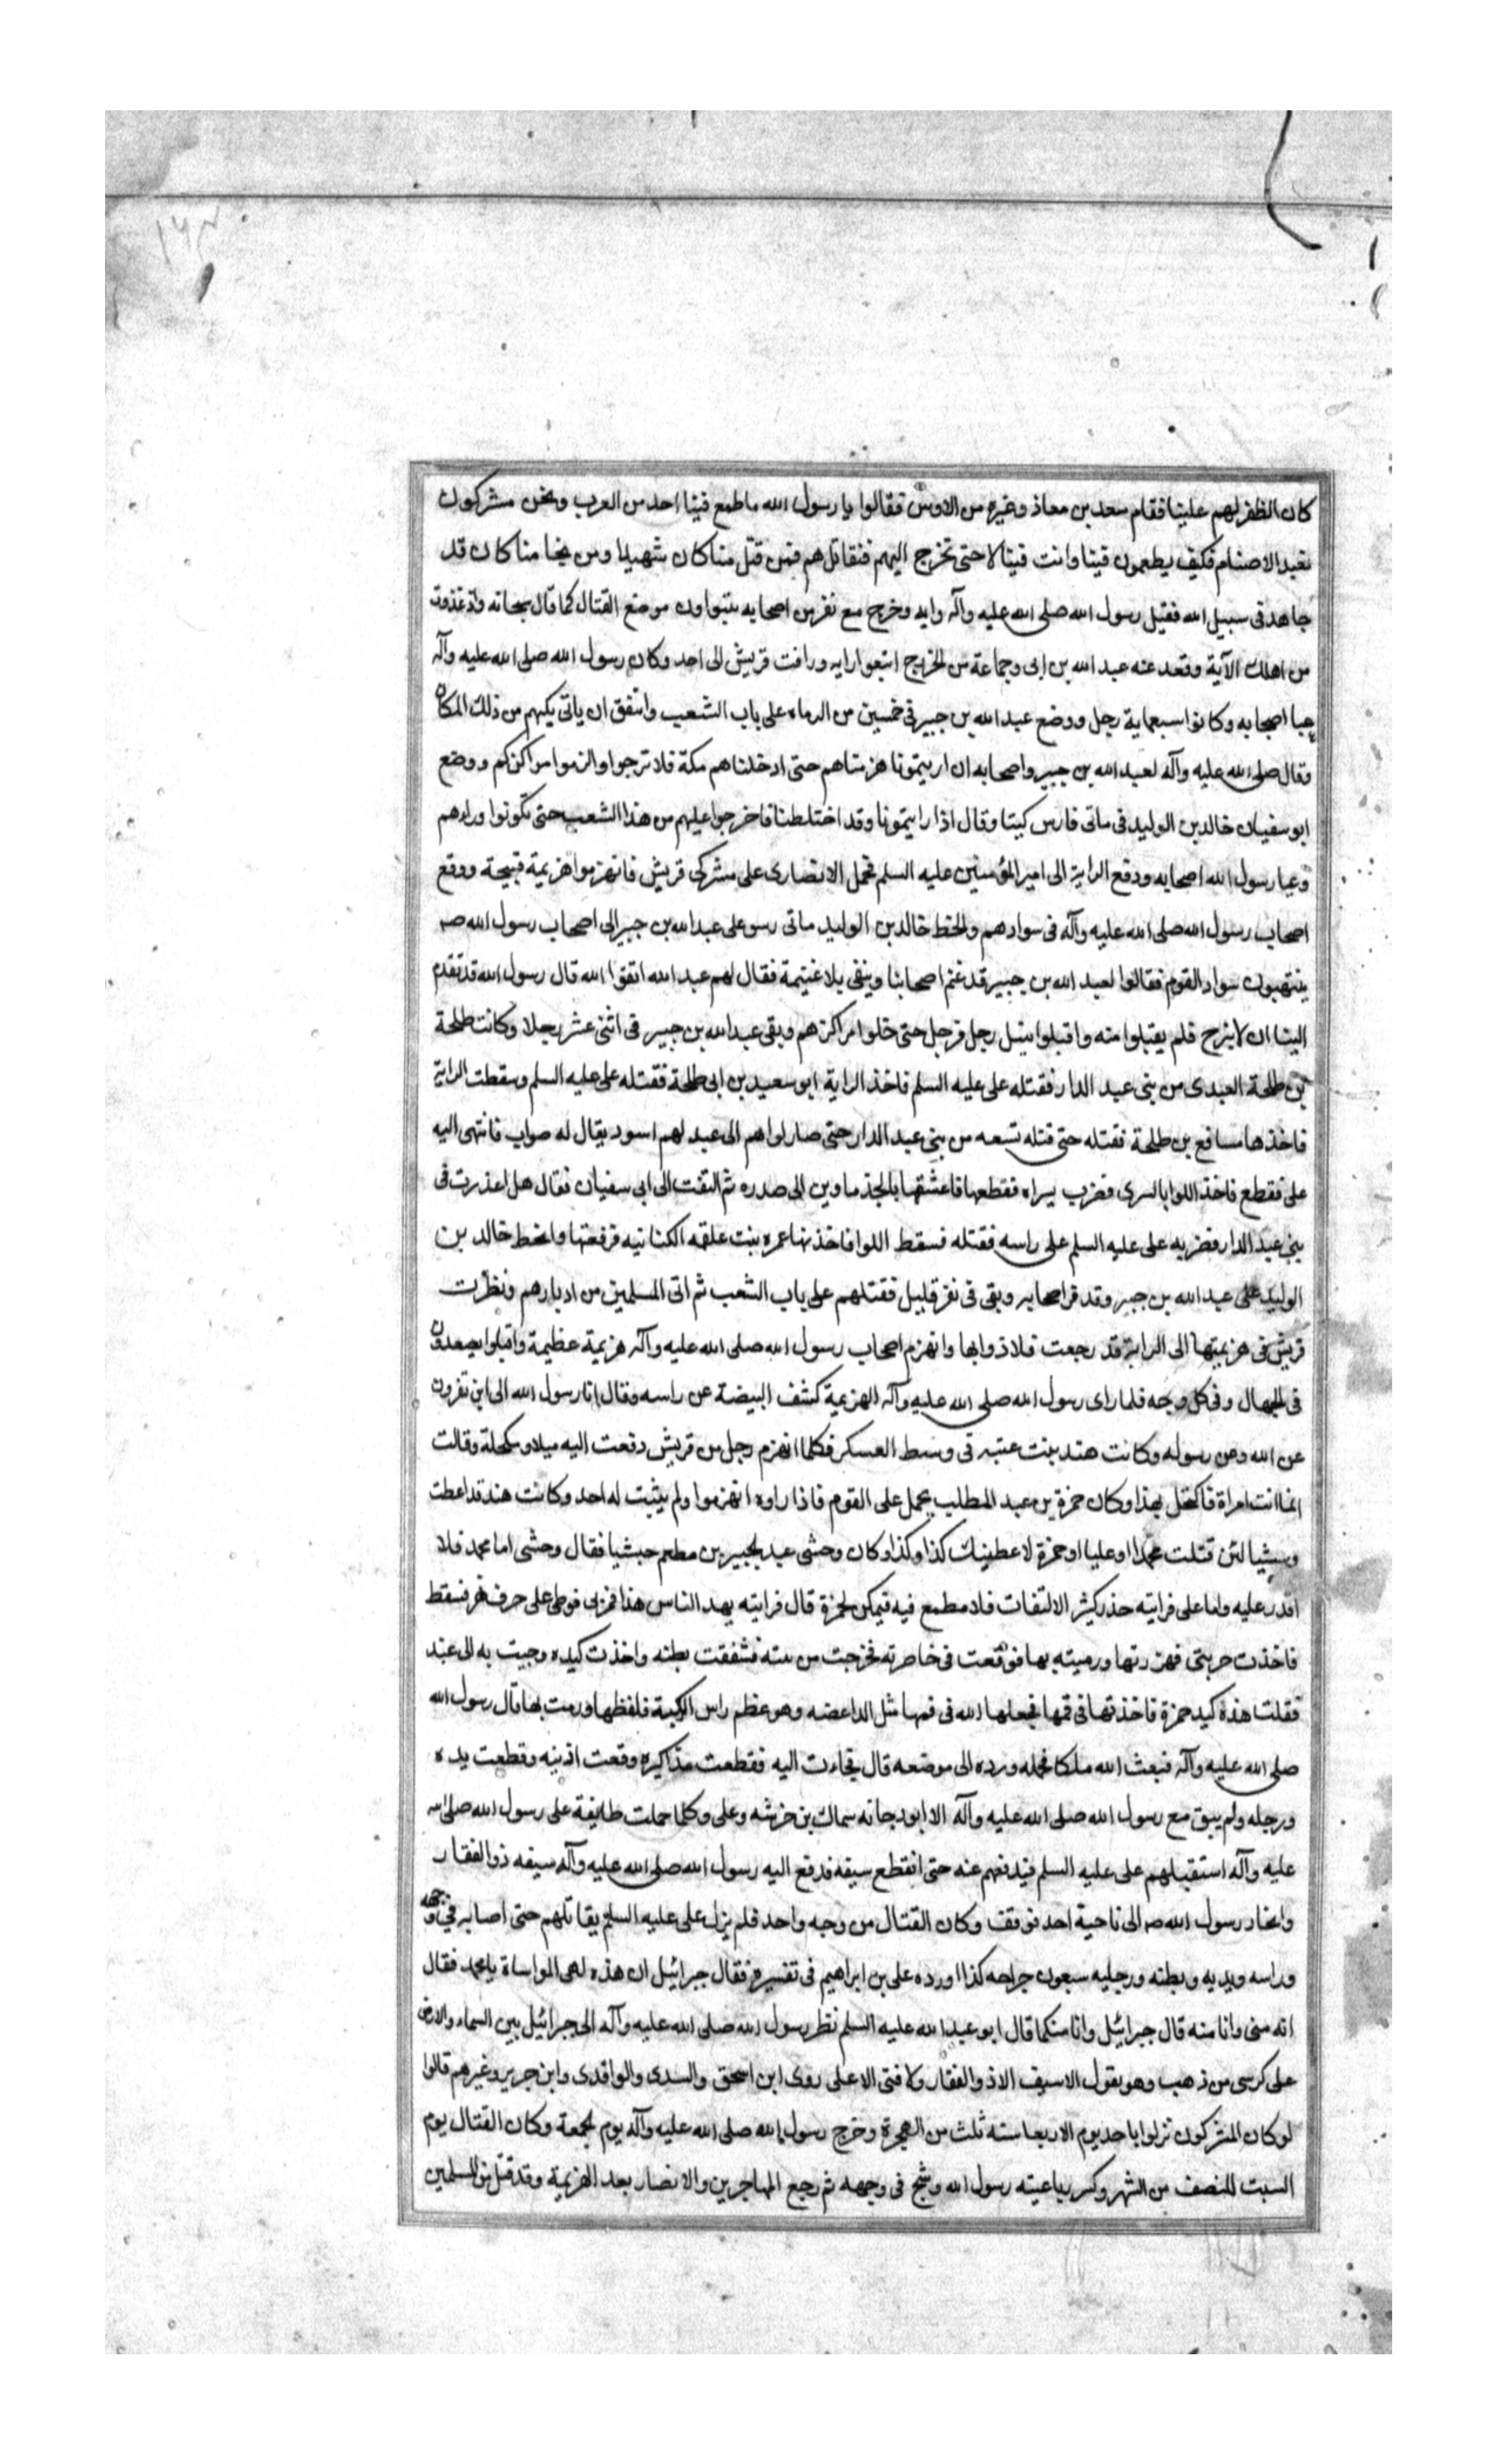 كان الظفر لهم علينا فقام سعد بن معاذ وغيره من الاوس فقالوا يا رسول الله ما طمع فينا احد من العرب ونحن مشركون
نعبد الاصنام فكيف يطمعون فينا وانت فينا لا حتى تخرج اليهم فنقاتلهم فمن قتل منا كان شهيدا ومن نجا منا كان قد
جاهد فى سبيل الله فقبل رسول الله صلى الله عليه وآله رايه وخرج مع نفر من اصحابه يتبواون موضع القتال كما قال سبحانه واذ غدوت
من اهلك الآية وقعد عنه عبد الله بن ابى وجماعة من الخزرج اتبعوا رايه ورافت قريش الى احد وكان رسول الله صلى الله عليه وآله
عبا اصحابه وكانوا سبعماية رجل ووضع عبد الله بن جبير فى خمسين من الرماه على باب الشعب واشفق ان ياتى كمينهم من ذلك المكان
وقال صلى الله عليه وآله لعبد الله بن جبير واصحابه ان رايتمونا هزمناهم حتى ادخلناهم مكة فلا تبرحوا والزموا مراكزكم ووضع
ابو سفيان خالد بن الوليد فى ماتى فارس كمينا وقال اذا رايتمونا وقد اختلطنا فاخرجوا عليهم من هذا الشعب حتى تكونوا وراءهم
وعبا رسول الله اصحابه ودفع الراية الى امير المؤمنين عليه السلم فحمل الانصارى على مشركى قريش فانهزموا هزيمة قبيحة ووقع
اصحاب رسول الله صلى الله عليه وآله فى سوادهم وانحط خالد بن الوليد ماتى رسو على عبد الله بن جبير الى اصحاب رسول الله صم
ينتهبون سواد القوم فقالوا لعبد الله بن جبير قد غنم اصحابنا ونبقى بلا غنيمة فقال لهم عبد الله اتقوا الله قال رسول الله قد تقدم
الينا ان لا نبرح فلم يقبلوا منه واقبلوا ينسل رجل فرجل حتى خلوا مراكزهم وبقى عبد الله بن جبير فى اثنى عشر رجلا وكانت طلحة
بن طلحة العبدى من بنى عبد الدار فقتله على عليه السلم فاخذ الراية ابو سعيد بن ابى طلحة فقتله على عليه السلم وسقطت الراية
فاخذها مسافع بن طلحة فقتله حتى قتله تسعه من بنى عبد الدار حتى صار لواهم الى عبد لهم اسود يقال له صواب فانتهى اليه
على فقطع فاخذ اللوا باليسرى فضرب يسراه فقطعها فاعتنقها بالجذماوين الى صدره ثم التفت الى ابى سفيان فقال هل اعذرت فى
بنى عبد الدار فضربه على عليه السلم على راسه فقتله فسقط اللوا فاخذتها عمره بنت علقمه الكنانيه فرفعتها وانحط خالد بن
الوليد على عبد الله بن جبير وقد فر اصحابه وبقى فى نفر قليل فقتلهم على باب الشعب ثم اتى المسلمين من ادبارهم ونظرت
قريش فى هزيمتها الى الراية قد رجعت فلاذوا بها وانهزم اصحاب رسول الله صلى الله عليه وآله هزيمة عظيمة واقبلوا يصعدون
فى الجبال وفى كل وجه فلما راى رسول الله صلى الله عليه وآله الهزيمة كشف البيضة عن راسه وقال انا رسول الله الى اين تفرون
عن الله وعن رسوله وكانت هند بنت عتبه فى وسط العسكر فكلما انهزم رجل من قريش دفعت اليه ميلا ومكحلة وقالت
انما انت امراة فاكتحل بهذا وكان حمزة بن عبد المطلب يحمل على القوم فاذا راوه انهزموا ولم يثبت له احد وكانت هند قد اعطت
وحشيا لئن قتلت محمدا او عليا او حمزة لاعطينك كذا وكذا وكان وحشى عبد لجبير بن مطعم حبشيا فقال وحشى اما محمد فلا
اقدر عليه واما على فرايته حذر كثير الالتفات فلا مطمع فيه فيمكن لحمزة قال فرايته يهد الناس هذا فمر بى فوطى على حرف نهر فسقط
فاخذت حربتى فهززتها ورميته بها فوقعت فى خاصرته فخرجت من مثنته فشققت بطنه واخذت كبده وجيت به الى هند
فقلت هذه كبد حمزة فاخذتها فى فمها فجعلها الله فى فمها مثل الداعضه وهو عظم راس الركبة فلفظها ورمت بها قال رسول الله
صلى الله عليه وآله فبعث الله ملكا فحمله ورده الى موضعه قال فجاءت اليه فقطعت مذاكيره وقعت اذنيه وقطعت يده
ورجله ولم يبق مع رسول الله صلى الله عليه وآله الا ابو دجانه سماك بن خرشه وعلى وكلما حملت طايفة على رسول الله صلى الله
عليه وآله استقبلهم على عليه السلم فيدفعهم عنه حتى انقطع سيفه فدفع اليه رسول الله صلى الله عليه وآله سيفه ذو الفقار
وانحاز رسول الله صم الى ناحية احد فوقف وكان القتال من وجه واحد فلم يزل على عليه السلم يقاتلهم حتى اصابه فى وجهه
وراسه ويديه وبطنه ورجليه سبعون جراحه كذا اورده على بن ابراهيم فى تفسيره فقال جبرائيل ان هذه لهى المواساة يا محمد فقال
انه منى وانا منه قال جبرائيل وانا منكما قال ابو عبد الله عليه السلم نظر رسول الله صلى الله عليه وآله الى جبرائيل بين السماء والارض
على كرسى من ذهب وهو يقول لا سيف الا ذو الفقار ولا فتى الا على روى ابن اسحق والسدى والواقدى وابن جرير وغيرهم قالوا
لو كان المشركون نزلوا باحد يوم الاربعا سنه ثلث من الهجرة وخرج رسول الله صلى الله عليه وآله يوم الجمعة وكان القتال يوم
السبت للنصف من الشهر وكسر رباعيته رسول الله وشج فى وجهه ثم رجع المهاجرين والانصار بعد الهزيمة وقد قتل من المسلمين